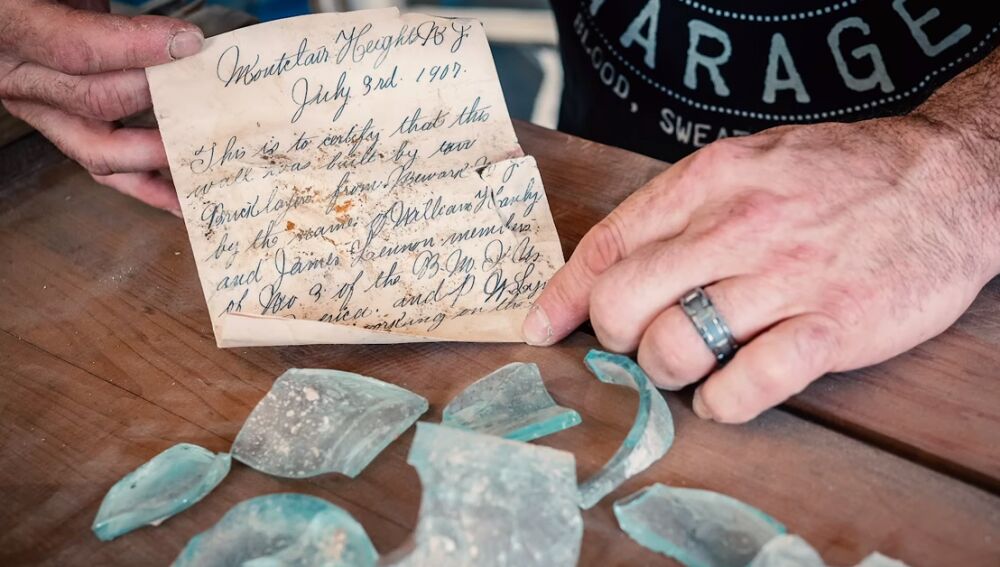 Montclair Height N J.
July 3rd. 1907.
This is to certify that this
wall was built by two
Bricklayers from Newark N. J.
by the name of William Hanly
and James Lennon members
of No 3 of the B. M.
and
working on the
GARAGE
BLOOD, SWEAT